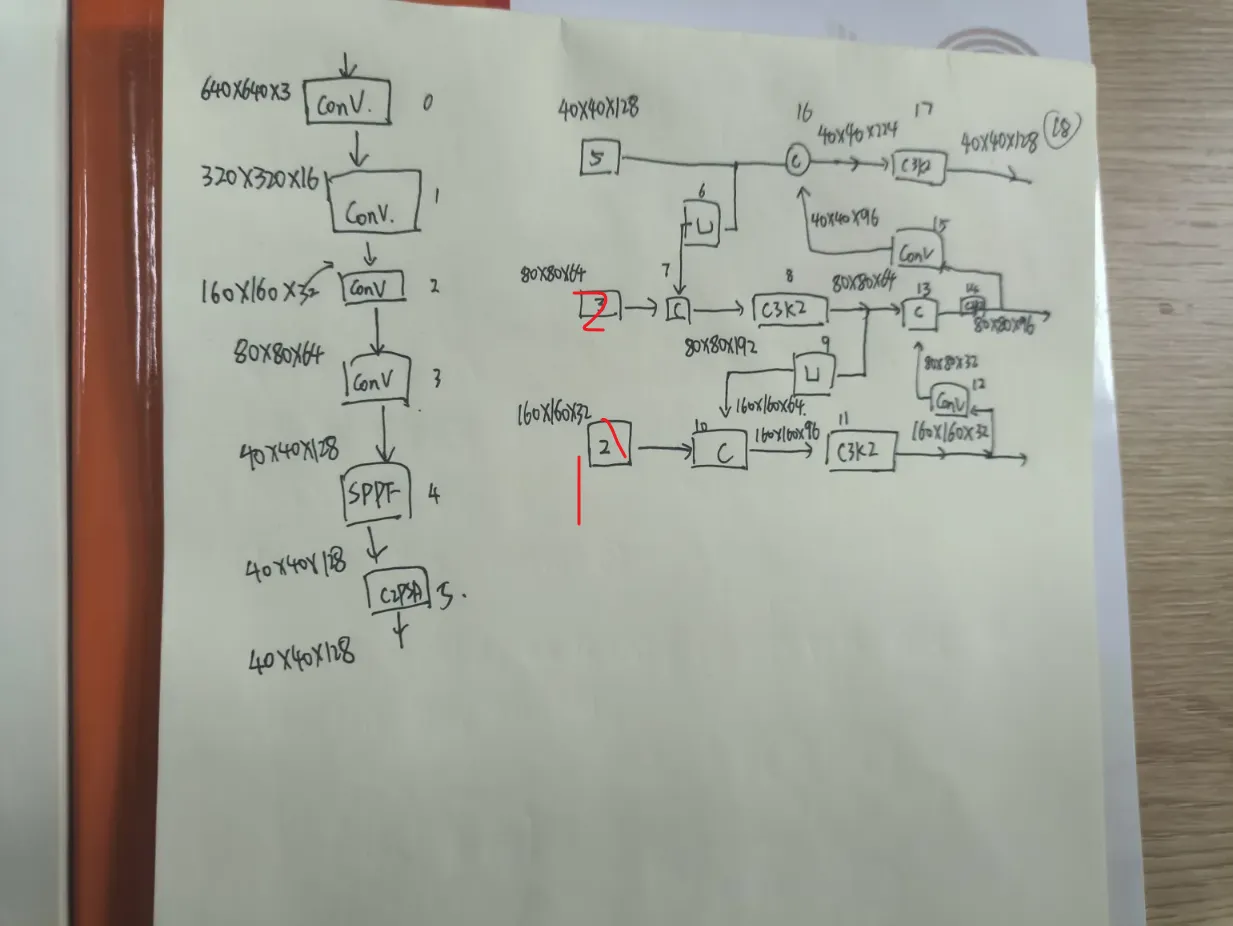 640X640X3 Conv. 0
320X320X16 Conv. 1
160X160X32 Conv 2
80X80X64 Conv 3
40X40X128 SPPF 4
40X40X128 C2PSA 5.
40X40X128
40X40X128 16 17
5 C 40X40X224 C3K2 40X40X128 18
6
U 40X40X96 15
Conv
80X80X64 7 8 80X80X64 13 14
2 C C3K2 C
80X80X96
80X80X192 9
U 80X80X32 12
Conv
160X160X32 160X160X64. 10 160X160X96 11 160X160X32
2 C C3K2
1